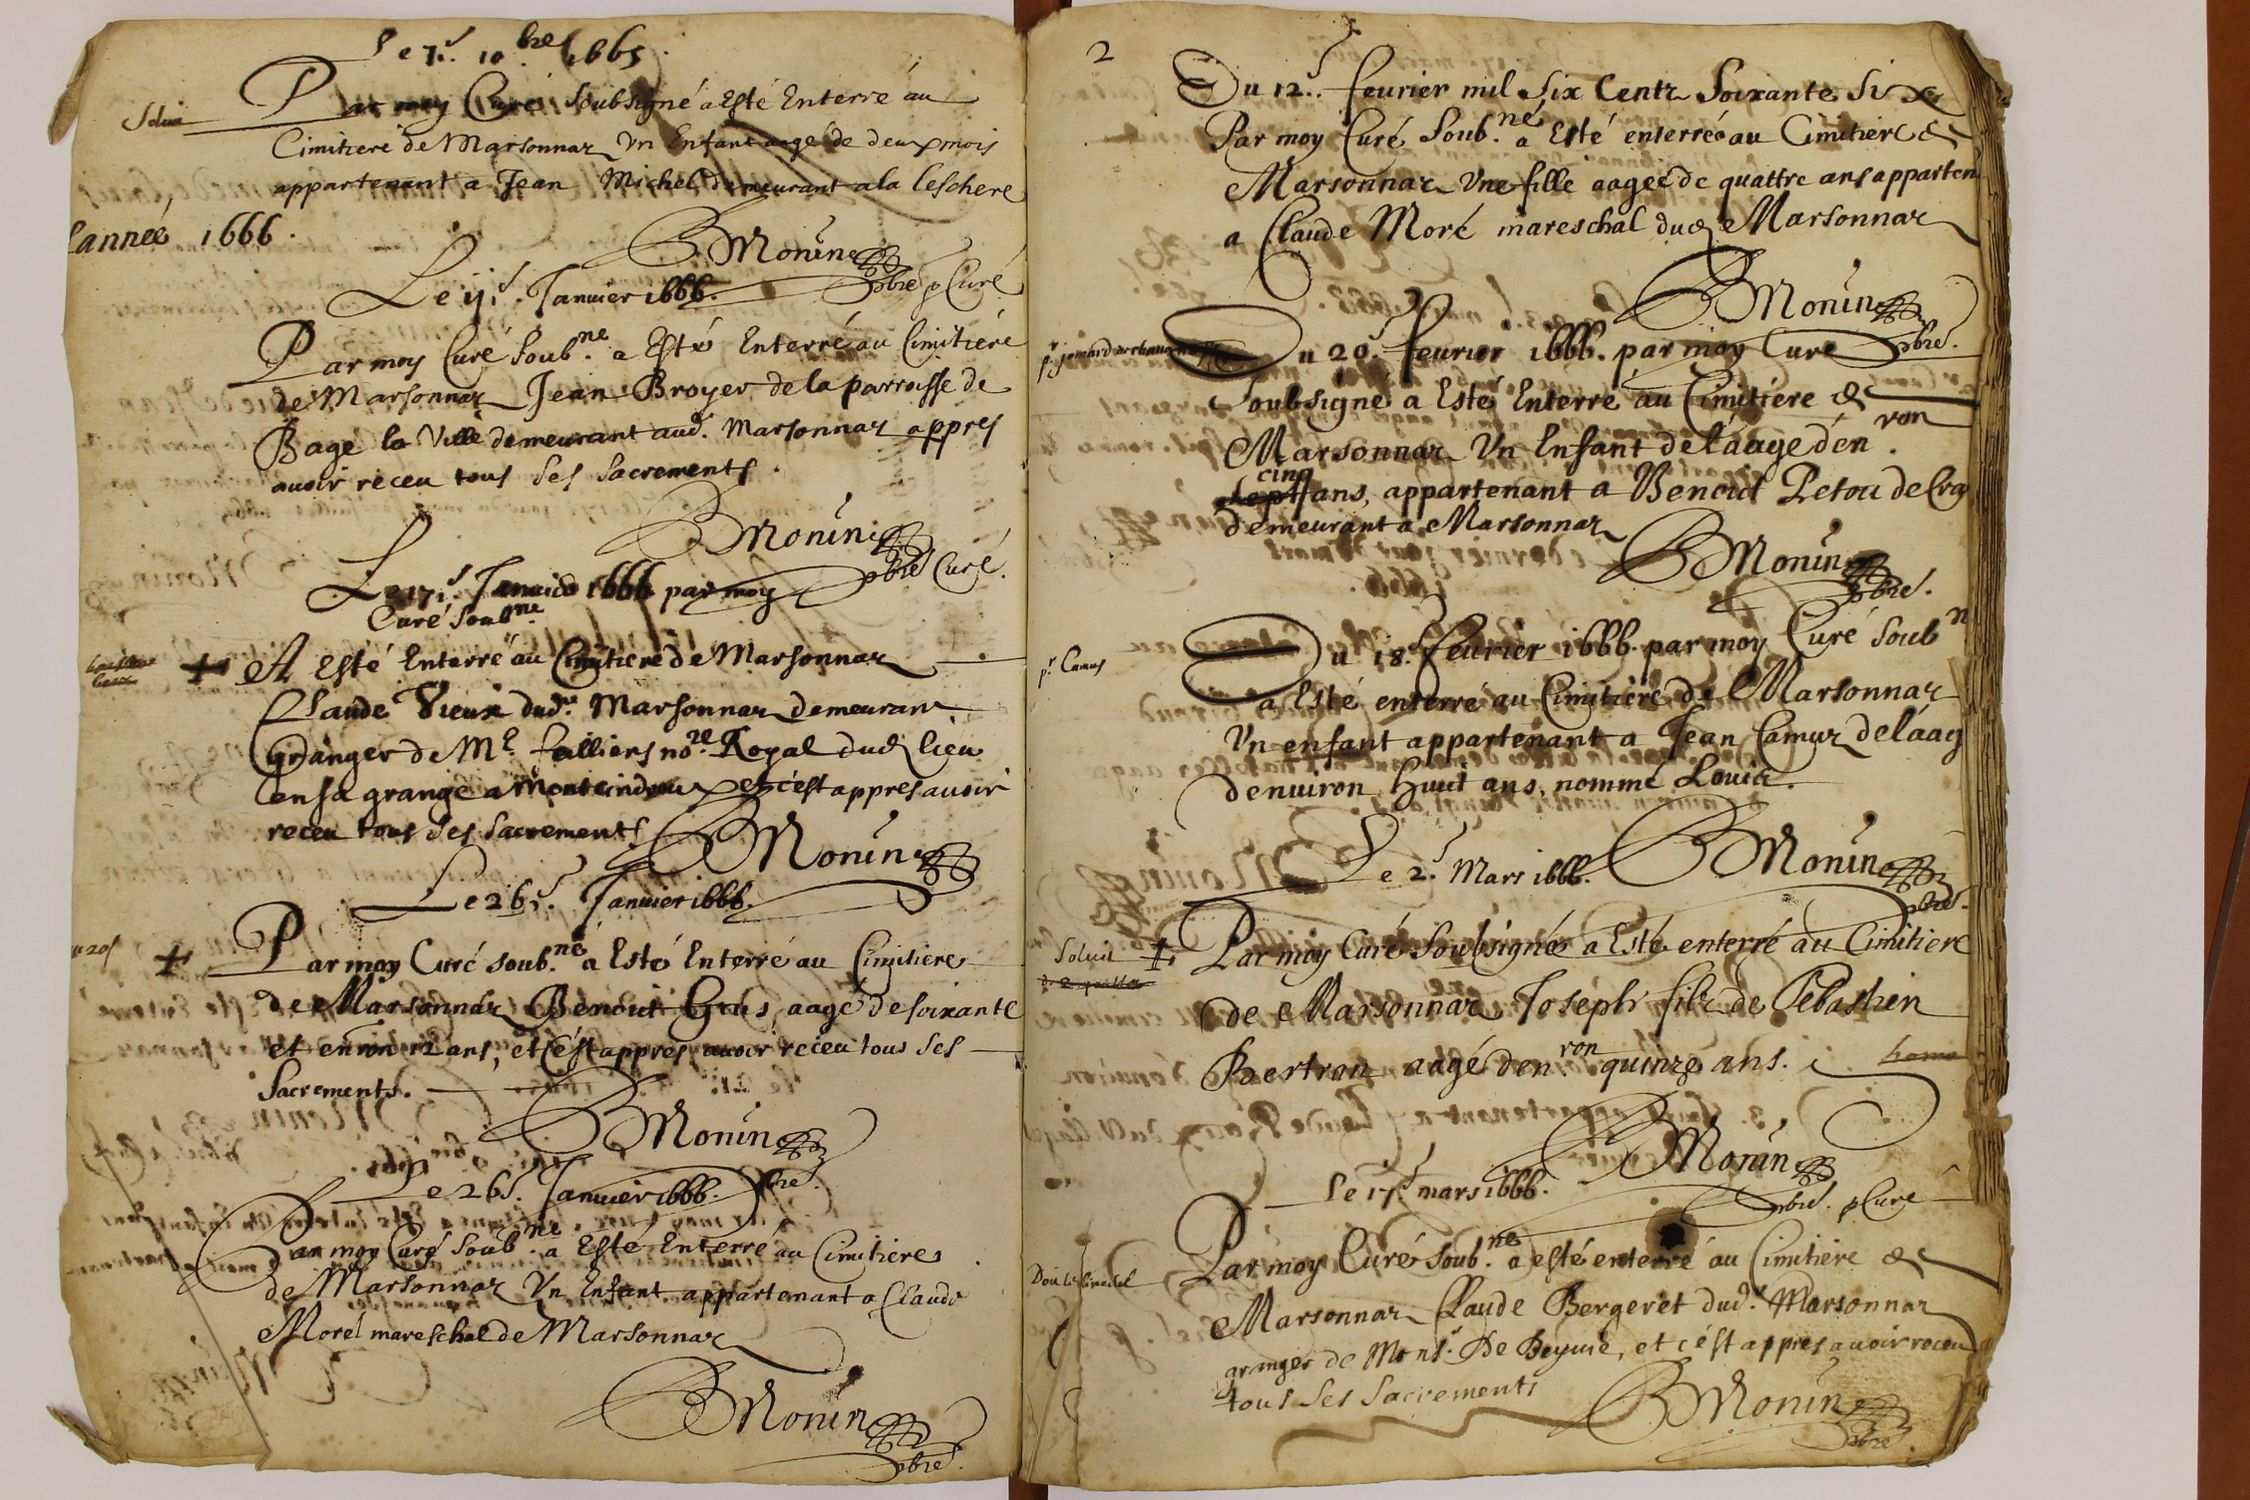 Le 7.e 10.bre 1665
Par moy Curé soubsigné a Esté Enterré au
Cimitiere de Marsonnaz Un Enfant aagé de deux mois
appartenant a Jean Michel demeurant a la leschere
l'année 1666.
BMonin
pbre Curé
Le Janvier 1666.
Par moy Curé soub.né a Esté Enterré au Cimitiére
de Marsonnaz Jean Broyer de la parroisse de
Bagé la Ville demeurant aud. Marsonnaz appres
avoir receu tous ses sacrements.
BMonin
pbre Curé.
Le 17.e Janvier 1666 par moy
Curé soub.né
A Esté Enterré au Cimitiere de Marsonnaz
Claude Vieux dud. Marsonnaz demeurant
granger de M.e falliers no.re Royal dud lieu
en sa grange a et c'est appres avoir
receu tous ses sacrements
BMonin
Le 26.e Janvier 1666.
Par moy Curé soub.né a Esté Enterré au Cimitiere
de Marsonnaz Benoit aagé de soixante
et environ 12 ans, et c'est appres avoir receu tous ses
Sacrements.
BMonin
pbre.
Le 26.e Janvier 1666.
Par moy Curé soub.né a Esté Enterré au Cimitiere
de Marsonnaz Un Enfant appartenant a Claude
Morel mareschal de Marsonnaz
BMonin
pbre.
2
Du 12.e fevrier mil six Centz soixante six
Par moy Curé soub.né a Esté enterrée au Cimitiere de
Marsonnaz Une fille aagée de quattre ans apparten
a Claude Moré mareschal dud Marsonnaz
BMonin
pbre.
Du 20.e fevrier 1666. par moy Curé
soubsigné a Esté Enterré au Cimitiére de
Marsonnaz Un Enfant de l'aage d'en.ron
cinq
sept ans, appartenant a Benoit Petou de Cra
demeurant a Marsonnaz
BMonin
pbre.
p.r Camus
Du 18.e fevrier 1666. par moy Curé soub.n
a Esté enterré au Cimitiere de Marsonnaz
Un enfant appartenant a Jean Camuz de l'aag
d'environ huit ans, nommé Louis.
BMonin
pbre.
Le 2.e Mars 1666.
Soluit
Par moy Curé Soubsigné a Esté enterré au Cimitiere
de Marsonnaz Joseph filz de Sebastien
Bertron aagé d'en.ron quinze ans.
BMonin
pbre. Curé
Le 17.e mars 1666.
Par moy Curé soub.né a esté enterré au Cimitiere de
Marsonnaz Claude Bergeret dud. Marsonnaz
granger de Mons.r De Beyvié, et c'est appres avoir receu
tous ses sacrements
BMonin
pbre